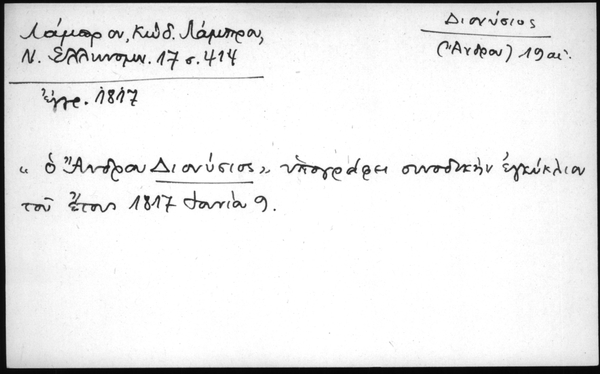 Λάμπρου, Κώδ. Λάμπρου,
Ν. Ελληνομν. 17 σ. 414
Διονύσιος
(Ἄνδρου) 19 αἰ.
ἔγγρ. 1817
« ὁ Ἄνδρου Διονύσιος » υπογράφει συνοδικὴν ἐγκύκλιον
τοῦ ἔτους 1817 ἰνδ 9.